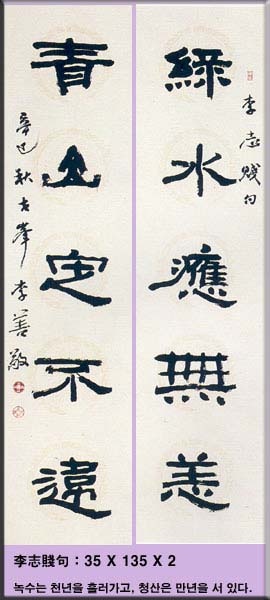 李志賤句
綠水應無恙
青山定不遠
辛巳秋古峯李善敬
李志賤句 : 35 X 135 X 2
녹수는 천년을 흘러가고, 청산은 만년을 서 있다.